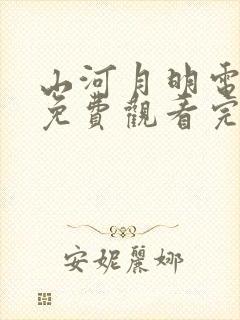 山河月明電
免費觀看完
安妮麗娜